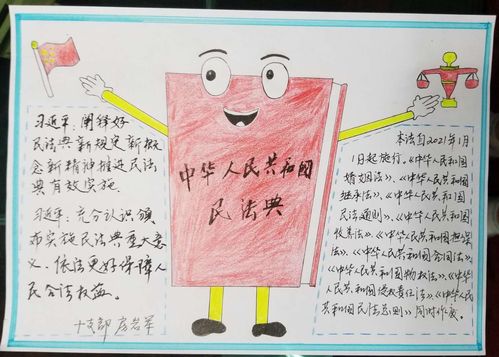 习近平:阐释好
民法典新规定新概
念新精神推进民法
典有效实施。
习近平:充分认识颁
布实施民法典重大意
义、依法更好保障人
民合法权益。
十支部
中华人民共和国
民法典
本法自2021年1月
1日起施行。《中华人民和国
婚姻法》、《中华人民共和国
继承法》、《中华人民共和国
民法通则》、《中华人民共和国
收养法》、《中华人民共和国担保
法》、《中华人民共和国合同法》、
《中华人民共和国物权法》、《中华
人民共和国侵权责任法》、《中华人
民共和国民法总则》同时作废。